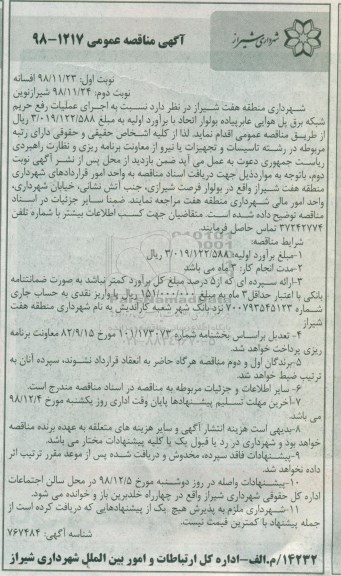 شهرداری شیراز
آگهی مناقصه عمومی ۱۲۱۷-۹۸
نوبت اول: ۹۸/۱۱/۲۳ افسانه
نوبت دوم: ۹۸/۱۱/۲۴ شیرازنوین
شهرداری منطقه هفت شیراز در نظر دارد نسبت به اجرای عملیات رفع حریم
شبکه برق پل هوایی عابرپیاده بولوار اتحاد با برآورد اولیه به مبلغ ۳/۰۱۹/۱۲۲/۵۸۸ ریال
از طریق مناقصه عمومی اقدام نماید. لذا از کلیه اشخاص حقیقی و حقوقی دارای رتبه
مربوطه در رشته تاسیسات و تجهیزات یا نیرو از معاونت برنامه ریزی و نظارت راهبردی
ریاست جمهوری دعوت به عمل می آید ضمن بازدید از محل پس از نشر آگهی نوبت
دوم، باتوجه به مواردذیل جهت دریافت اسناد مناقصه به واحد امور قراردادهای شهرداری
منطقه هفت شیراز واقع در بولوار فرصت شیرازی، جنب آتش نشانی، خیابان شهرداری،
واحد امور مالی شهرداری منطقه هفت مراجعه نمایند. ضمنا سایر جزئیات در اسناد
مناقصه توضیح داده شده است. متقاضیان جهت کسب اطلاعات بیشتر با شماره تلفن
۳۷۲۴۲۷۷۴ تماس حاصل فرمایند.
شرایط مناقصه:
۱-مبلغ برآورد اولیه: ۳/۰۱۹/۱۲۲/۵۸۸ ریال
۲-مدت انجام کار: ۳ ماه می باشد
۳-ارائه سپرده ای که از ۵ درصد مبلغ کل برآورد کمتر نباشد به صورت ضمانتنامه
بانکی با اعتبار حداقل ۳ ماه به مبلغ ۱۵۱/۰۰۰/۰۰۰ ریال یا واریز نقدی به حساب جاری
شماره ۷۰۰۷۹۳۵۴۵۱۲۳ نزد بانک شهر شعبه کارآندیش به نام شهرداری منطقه هفت
شیراز
۴- تعدیل براساس بخشنامه شماره ۱۰۱/۱۷۳۰۷۳ مورخ ۸۲/۹/۱۵ معاونت برنامه
ریزی پرداخت خواهد شد.
۵-برندگان اول و دوم مناقصه هرگاه حاضر به انعقاد قرارداد نشوند، سپرده آنان به
ترتیب ضبط خواهد شد.
۶- سایر اطلاعات و جزئیات مربوطه به مناقصه در اسناد مناقصه مندرج است.
۷-آخرین مهلت تسلیم پیشنهادها پایان وقت اداری روز یکشنبه مورخ ۹۸/۱۲/۴
می باشد.
۸-بدیهی است هزینه انتشار آگهی و سایر هزینه های متعلقه به عهده برنده مناقصه
خواهد بود و شهرداری در رد یا قبول یک یا کلیه پیشنهادات مختار می باشد.
۹-پیشنهادات فاقد سپرده، مخدوش و دریافت شده پس از موعد مقرر ترتیب اثر
داده نخواهد شد.
۱۰-پیشنهادات واصله در روز دوشنبه مورخ ۹۸/۱۲/۵ در محل سالن اجتماعات
اداره کل حقوقی شهرداری شیراز واقع در چهارراه خلدبرین باز و خوانده می شود.
۱۱-شهرداری ملزم به پذیرش هیچ یک از پیشنهادهایی که دریافت کرده است از
جمله پیشنهاد با کمترین قیمت نیست.
شناسه آگهی: ۷۶۷۴۸۴
۱۴۲۳۲/م.الف-اداره کل ارتباطات و امور بین الملل شهرداری شیراز